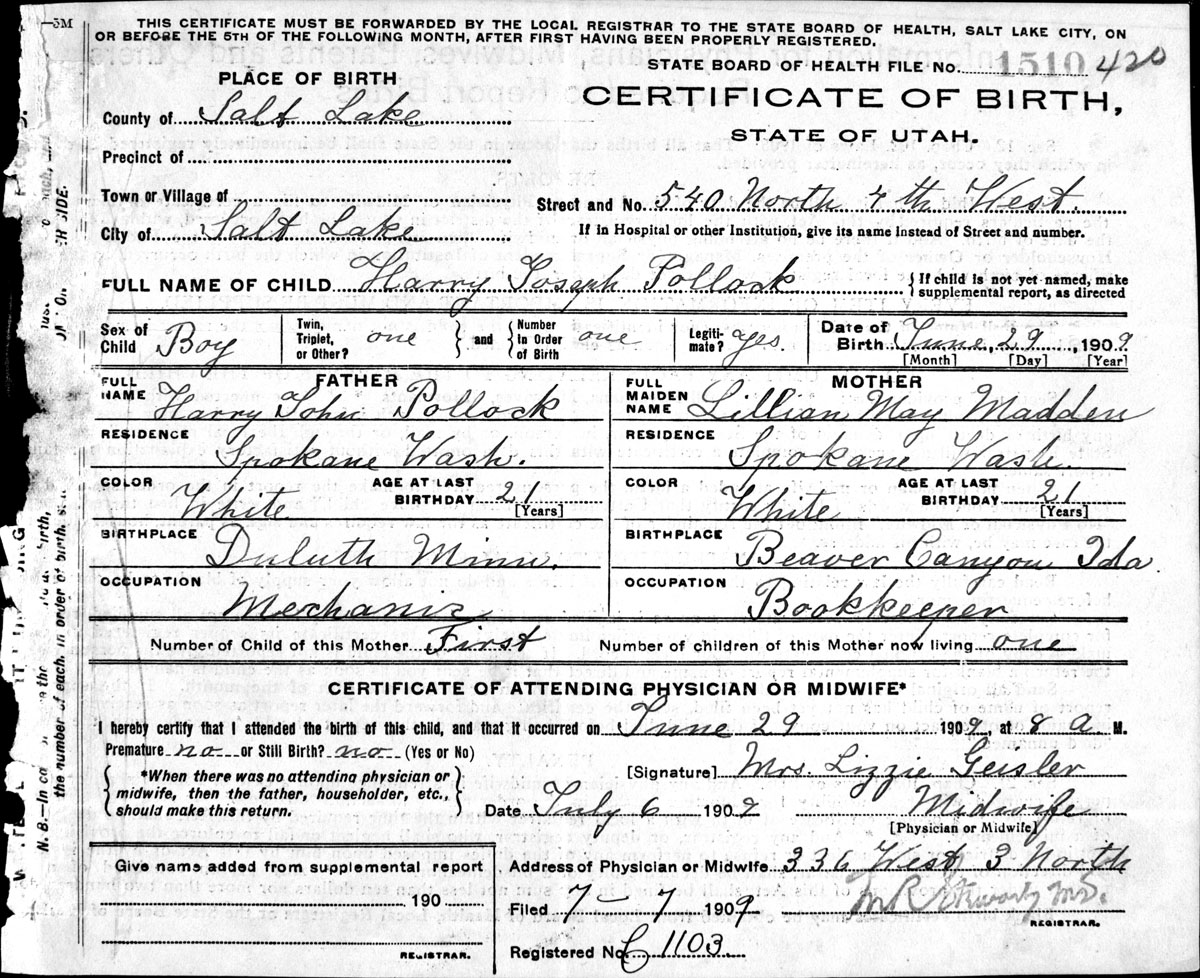 —5M
THIS CERTIFICATE MUST BE FORWARDED BY THE LOCAL REGISTRAR TO THE STATE BOARD OF HEALTH, SALT LAKE CITY, ON
OR BEFORE THE 5TH OF THE FOLLOWING MONTH, AFTER FIRST HAVING BEEN PROPERLY REGISTERED.
STATE BOARD OF HEALTH FILE No. 1510 420
PLACE OF BIRTH
CERTIFICATE OF BIRTH,
STATE OF UTAH.
County of Salt Lake
Precinct of
Town or Village of
Street and No. 540 North 4th West.
City of Salt Lake
If in Hospital or other Institution, give its name instead of Street and number.
FULL NAME OF CHILD Harry Joseph Pollock { If child is not yet named, make supplemental report, as directed
Sex of Child Boy Twin, Triplet, or Other? one } and { Number In Order of Birth one Legiti-mate? yes. Date of Birth June, 29, 1909
[Month] [Day] [Year]
FATHER MOTHER
FULL NAME Harry John Pollock FULL MAIDEN NAME Lillian May Madden
RESIDENCE Spokane Wash. RESIDENCE Spokane Wash.
COLOR White AGE AT LAST BIRTHDAY 21 [Years] COLOR White AGE AT LAST BIRTHDAY 21 [Years]
BIRTHPLACE Duluth Minn. BIRTHPLACE Beaver Canyon Ida.
OCCUPATION Mechanic OCCUPATION Bookkeeper
Number of Child of this Mother First Number of children of this Mother now living one
CERTIFICATE OF ATTENDING PHYSICIAN OR MIDWIFE*
I hereby certify that I attended the birth of this child, and that it occurred on June 29 1909, at 8 a M.
Premature no or Still Birth? no (Yes or No)
{ *When there was no attending physician or midwife, then the father, householder, etc., should make this return. }
[Signature] Mrs. Lizzie Geisler
Date July 6 1909 Midwife
[Physician or Midwife]
Give name added from supplemental report
190
REGISTRAR.
Address of Physician or Midwife 336 West 3 North
Filed 7-7 1909
REGISTRAR.
Registered No. C 1103.
the number of each, in order of birth,